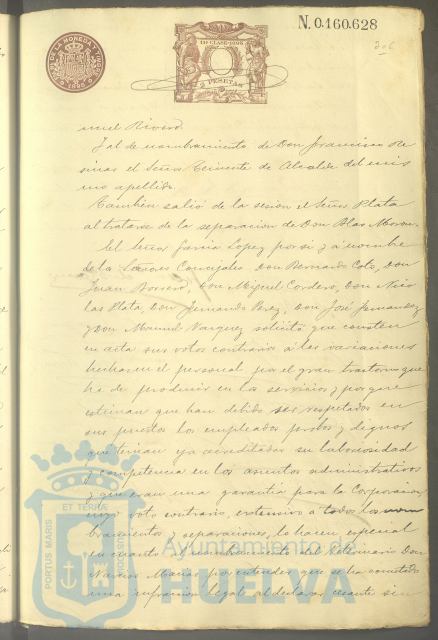 N. 0.160.628
11ª CLASE 1895
2 PESETAS
nuel Rivero.
Y al de nombramiento de Don Francisco Re
sinas el Señor Teniente de Alcalde del mis
mo apellido.
Tambien salió de la sesion el Señor Plata
al tratarse de la separacion de Don Blas Moron.
El Señor Garcia Lopez por si y á nombre
de los Señores Concejales Don Bernardo Coto, Don
Juan Borrero, Don Miguel Cordero, Don Nico
las Plata, Don Fernando Perez, Don José Fernandez
y Don Manuel Vazquez solicitó que consten
en acta sus votos contrarios á las variaciones
hechas en el personal por el gran trastorno que
ha de producir en los servicios y porque
estiman que han debido ser respetados en
sus puestos los empleados probos y dignos
que tenian ya acreditados su laboriosidad
y competencia en los asuntos administrativos
y que eran una garantia para la Corporacion
cuyo voto contrario, extensivo a todos los nom
bramientos y separaciones, lo hacen especial
en cuanto al nombramiento del Veterinario Don
Macias por entender que se ha cometido
una infraccion legal al declarar cesante sin
PORTUS MARIS ET TERRAE CUSTODIA
Ayuntamiento de
HUELVA